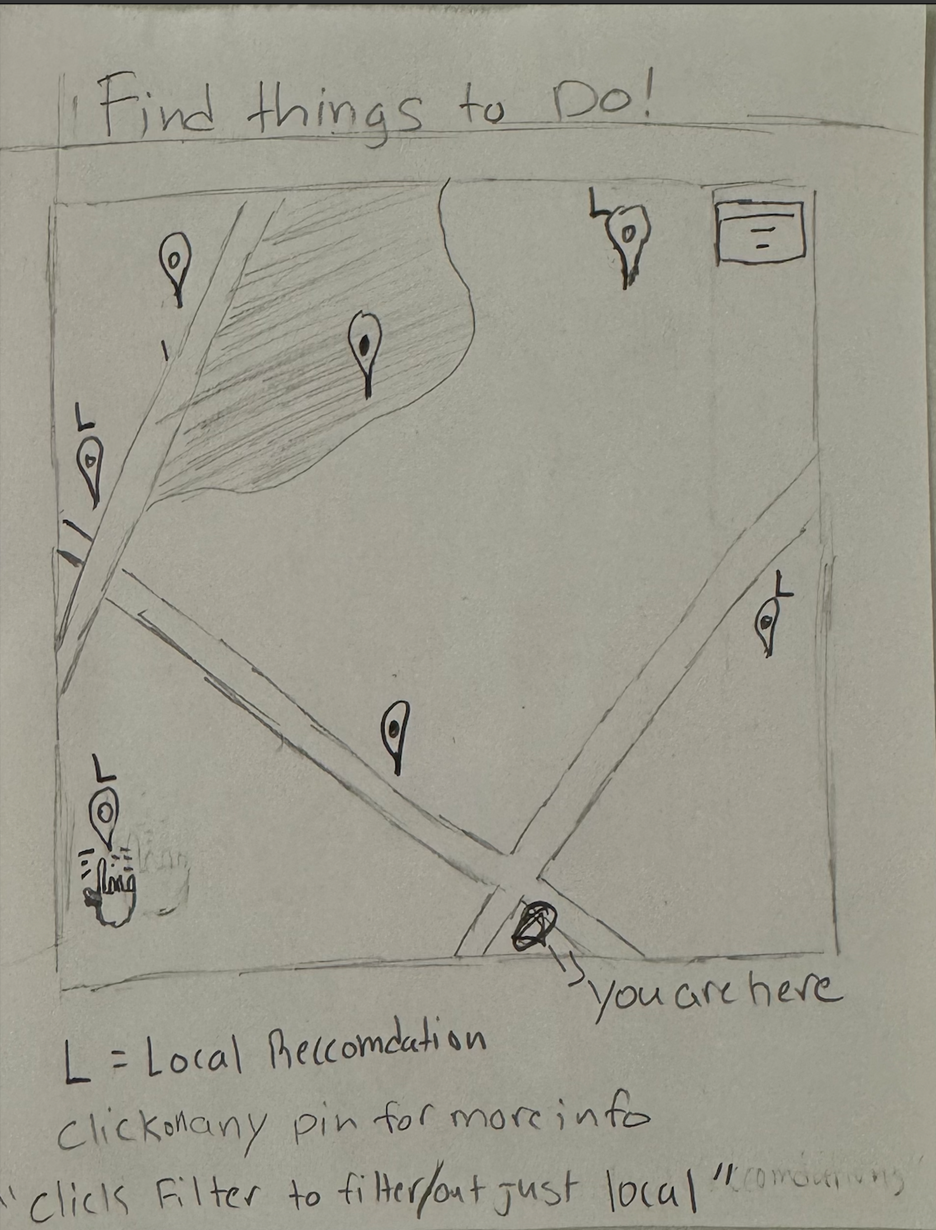 Find things to Do!
L
L
L
L
you are here
L = Local Reccomdation
Click on any pin for more info
"Click Filter to filter/out just local"